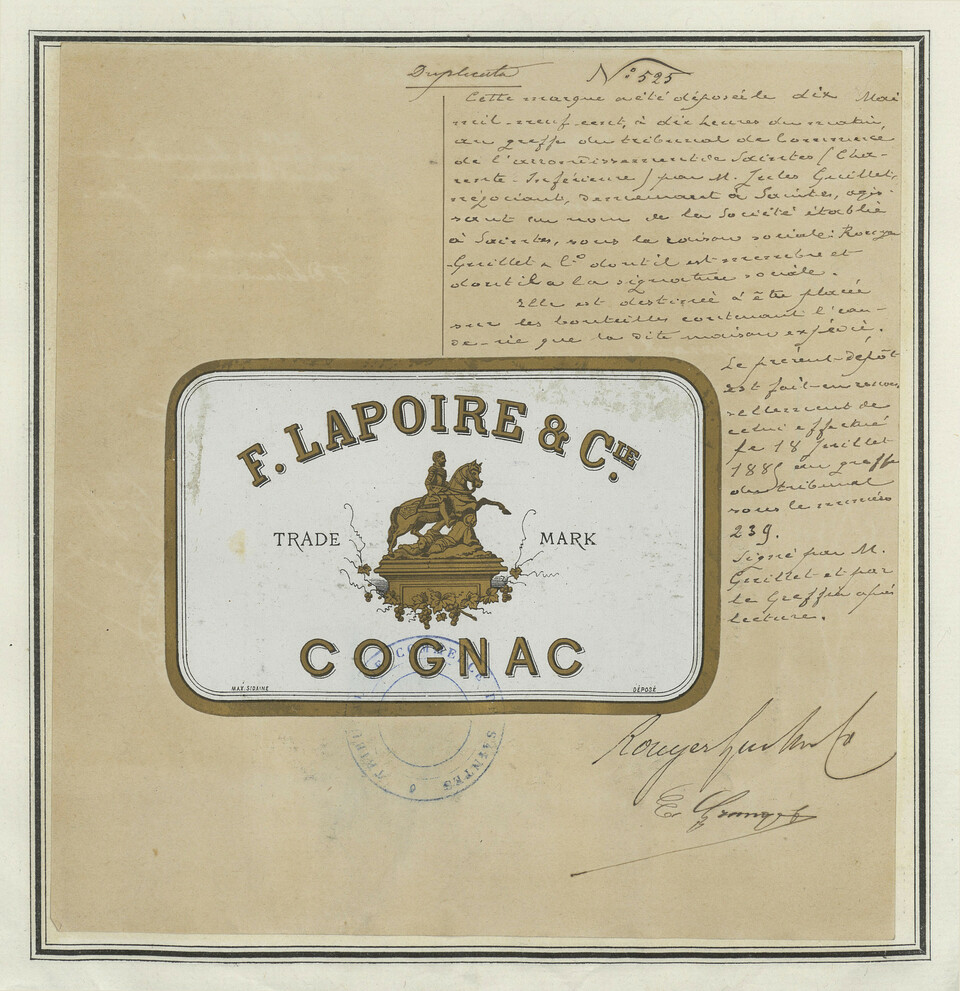 Duplicata
N° 525
Cette marque a été déposée le dix Mai
mil-neuf-cent, à dix heures du matin
au greffe du tribunal de Commerce
de l'arrondissement de Saintes (Cha-
rente-Inférieure) par M. Jules Guillet,
négociant, demeurant à Saintes, agis-
sant au nom de la Société établie
à Saintes, sous la raison sociale: Rouyer
Guillet & Cº dont il est membre et
dont il a la signature sociale.
Elle est destinée à être placée
sur les bouteilles contenant l'eau-
de-vie que la dite maison expédie.
Le présent dépôt
est fait en renou-
vellement de
celui effectué
le 18 Juillet
1885 au greffe
du tribunal
sous le numéro
239.
Signé par M.
Guillet et par
le Greffier après
lecture.
F. LAPOIRE & CIE.
TRADE MARK
COGNAC
MAX. SIDAINE
DÉPOSÉ
TRIBU COMMERCE SAINTES
Rouyer Guillet & Co